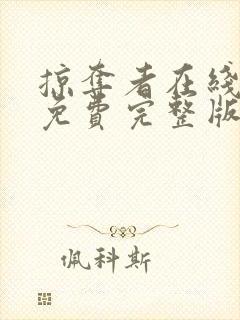 掠奪者在綫
免費完整版
佩科斯